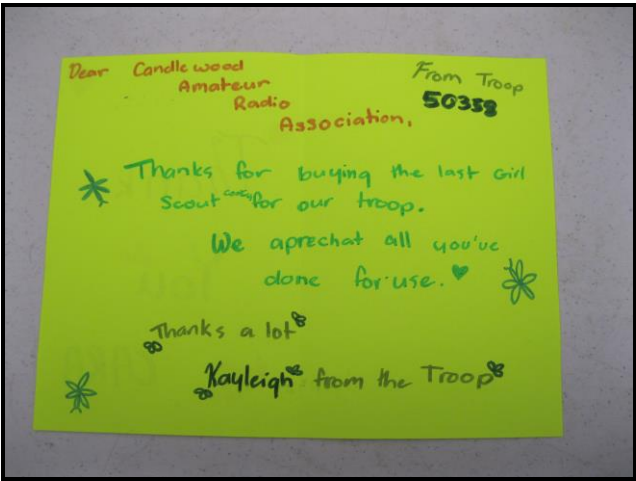 Dear Candlewood
Amateur
Radio
Association,
From Troop
50358
Thanks for buying the last Girl
Scout for our troop.
We aprechat all you've
done for use.
Thanks a lot
Kayleigh from the Troop